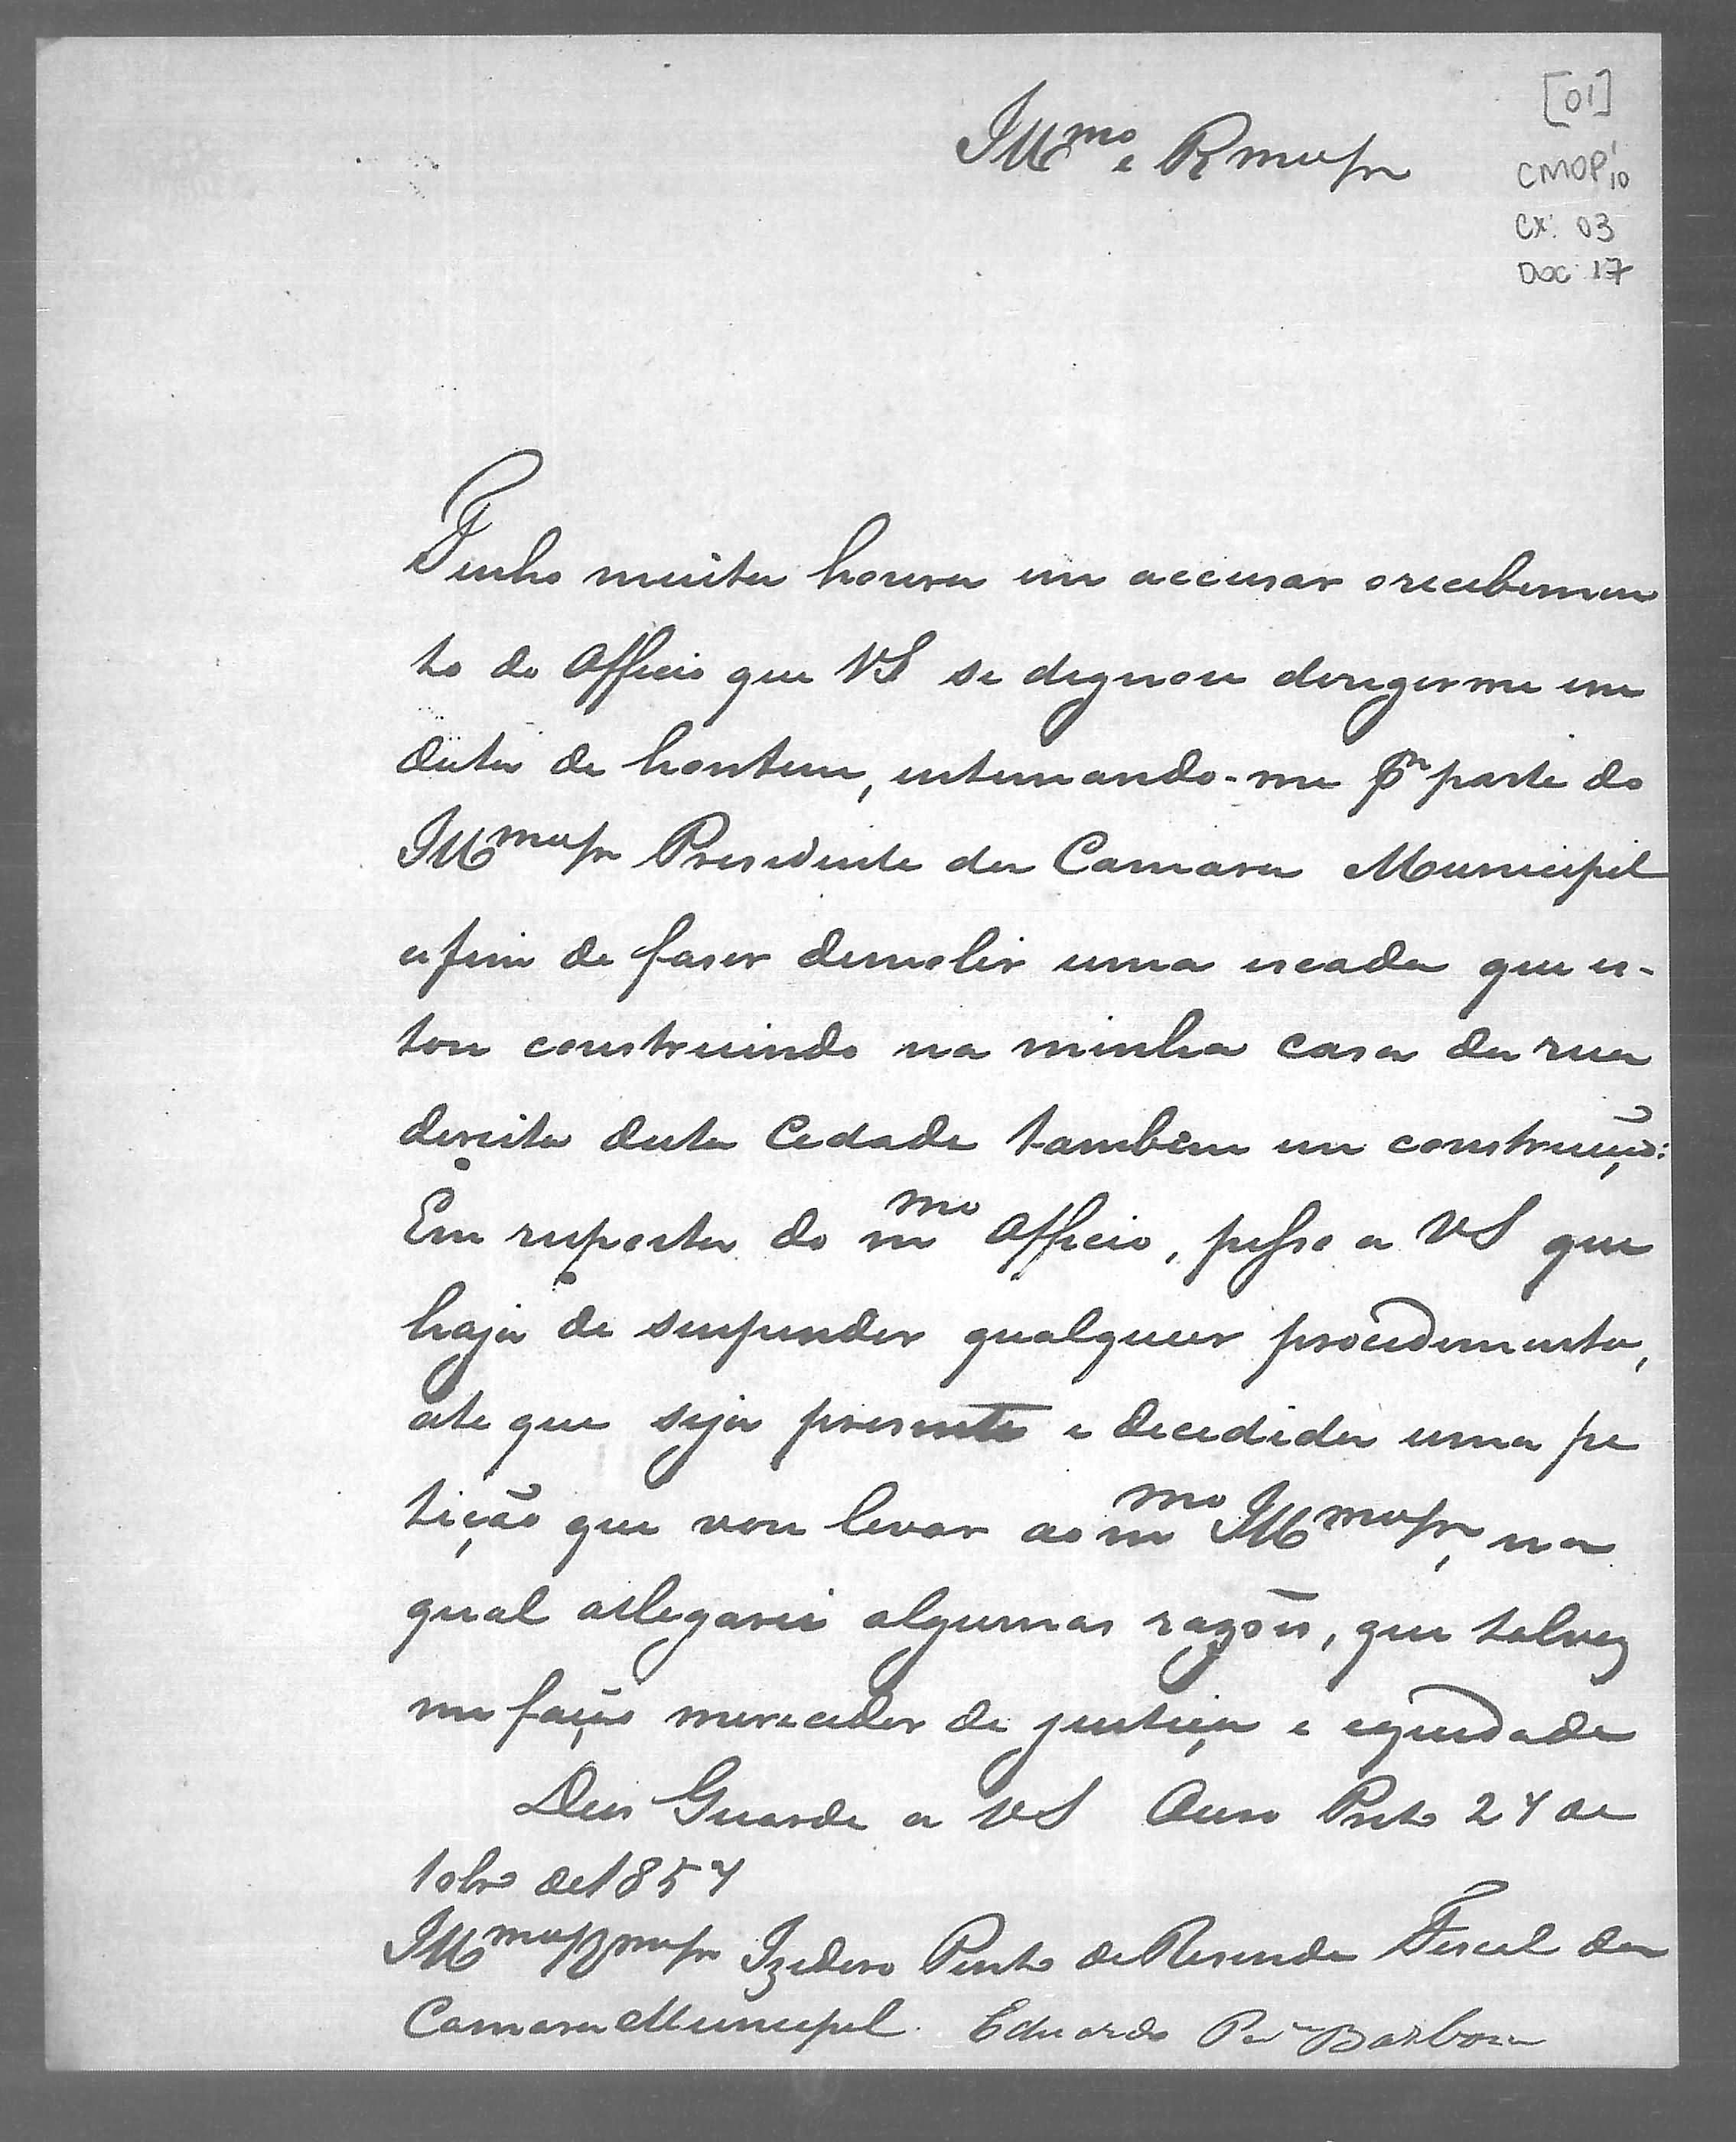 [01]
CMOP 1/10
Cx: 03
Doc 17
Illmo e Rmo Sr
Tenho muita honra em accusar o recebimen
to do Officio que VS se dignou deregirme em
data de hontem, intemando-me pr parte do
Illmo Sr Presidente da Camara Municipal
afim de faser demolir uma escada que es-
tou construindo na minha casa da rua
dereita desta Cedade tambem em construção:
Em resposta do mmo Officio, pesso a VS que
haja de suspender qualquer procedimento,
ate que seja presente e decedida uma pe
tição que vou levar ao mmo Illmo Sr, na
qual allegarei algumas razões, que talvez
me fação merecedor de justiça e equidade
Deus Guarde a VS Ouro Preto 24 de
1854
Illmo Sr Izedoro Pinto de Resende Fiscal da
Camara Municipal. Eduardo Barbosa